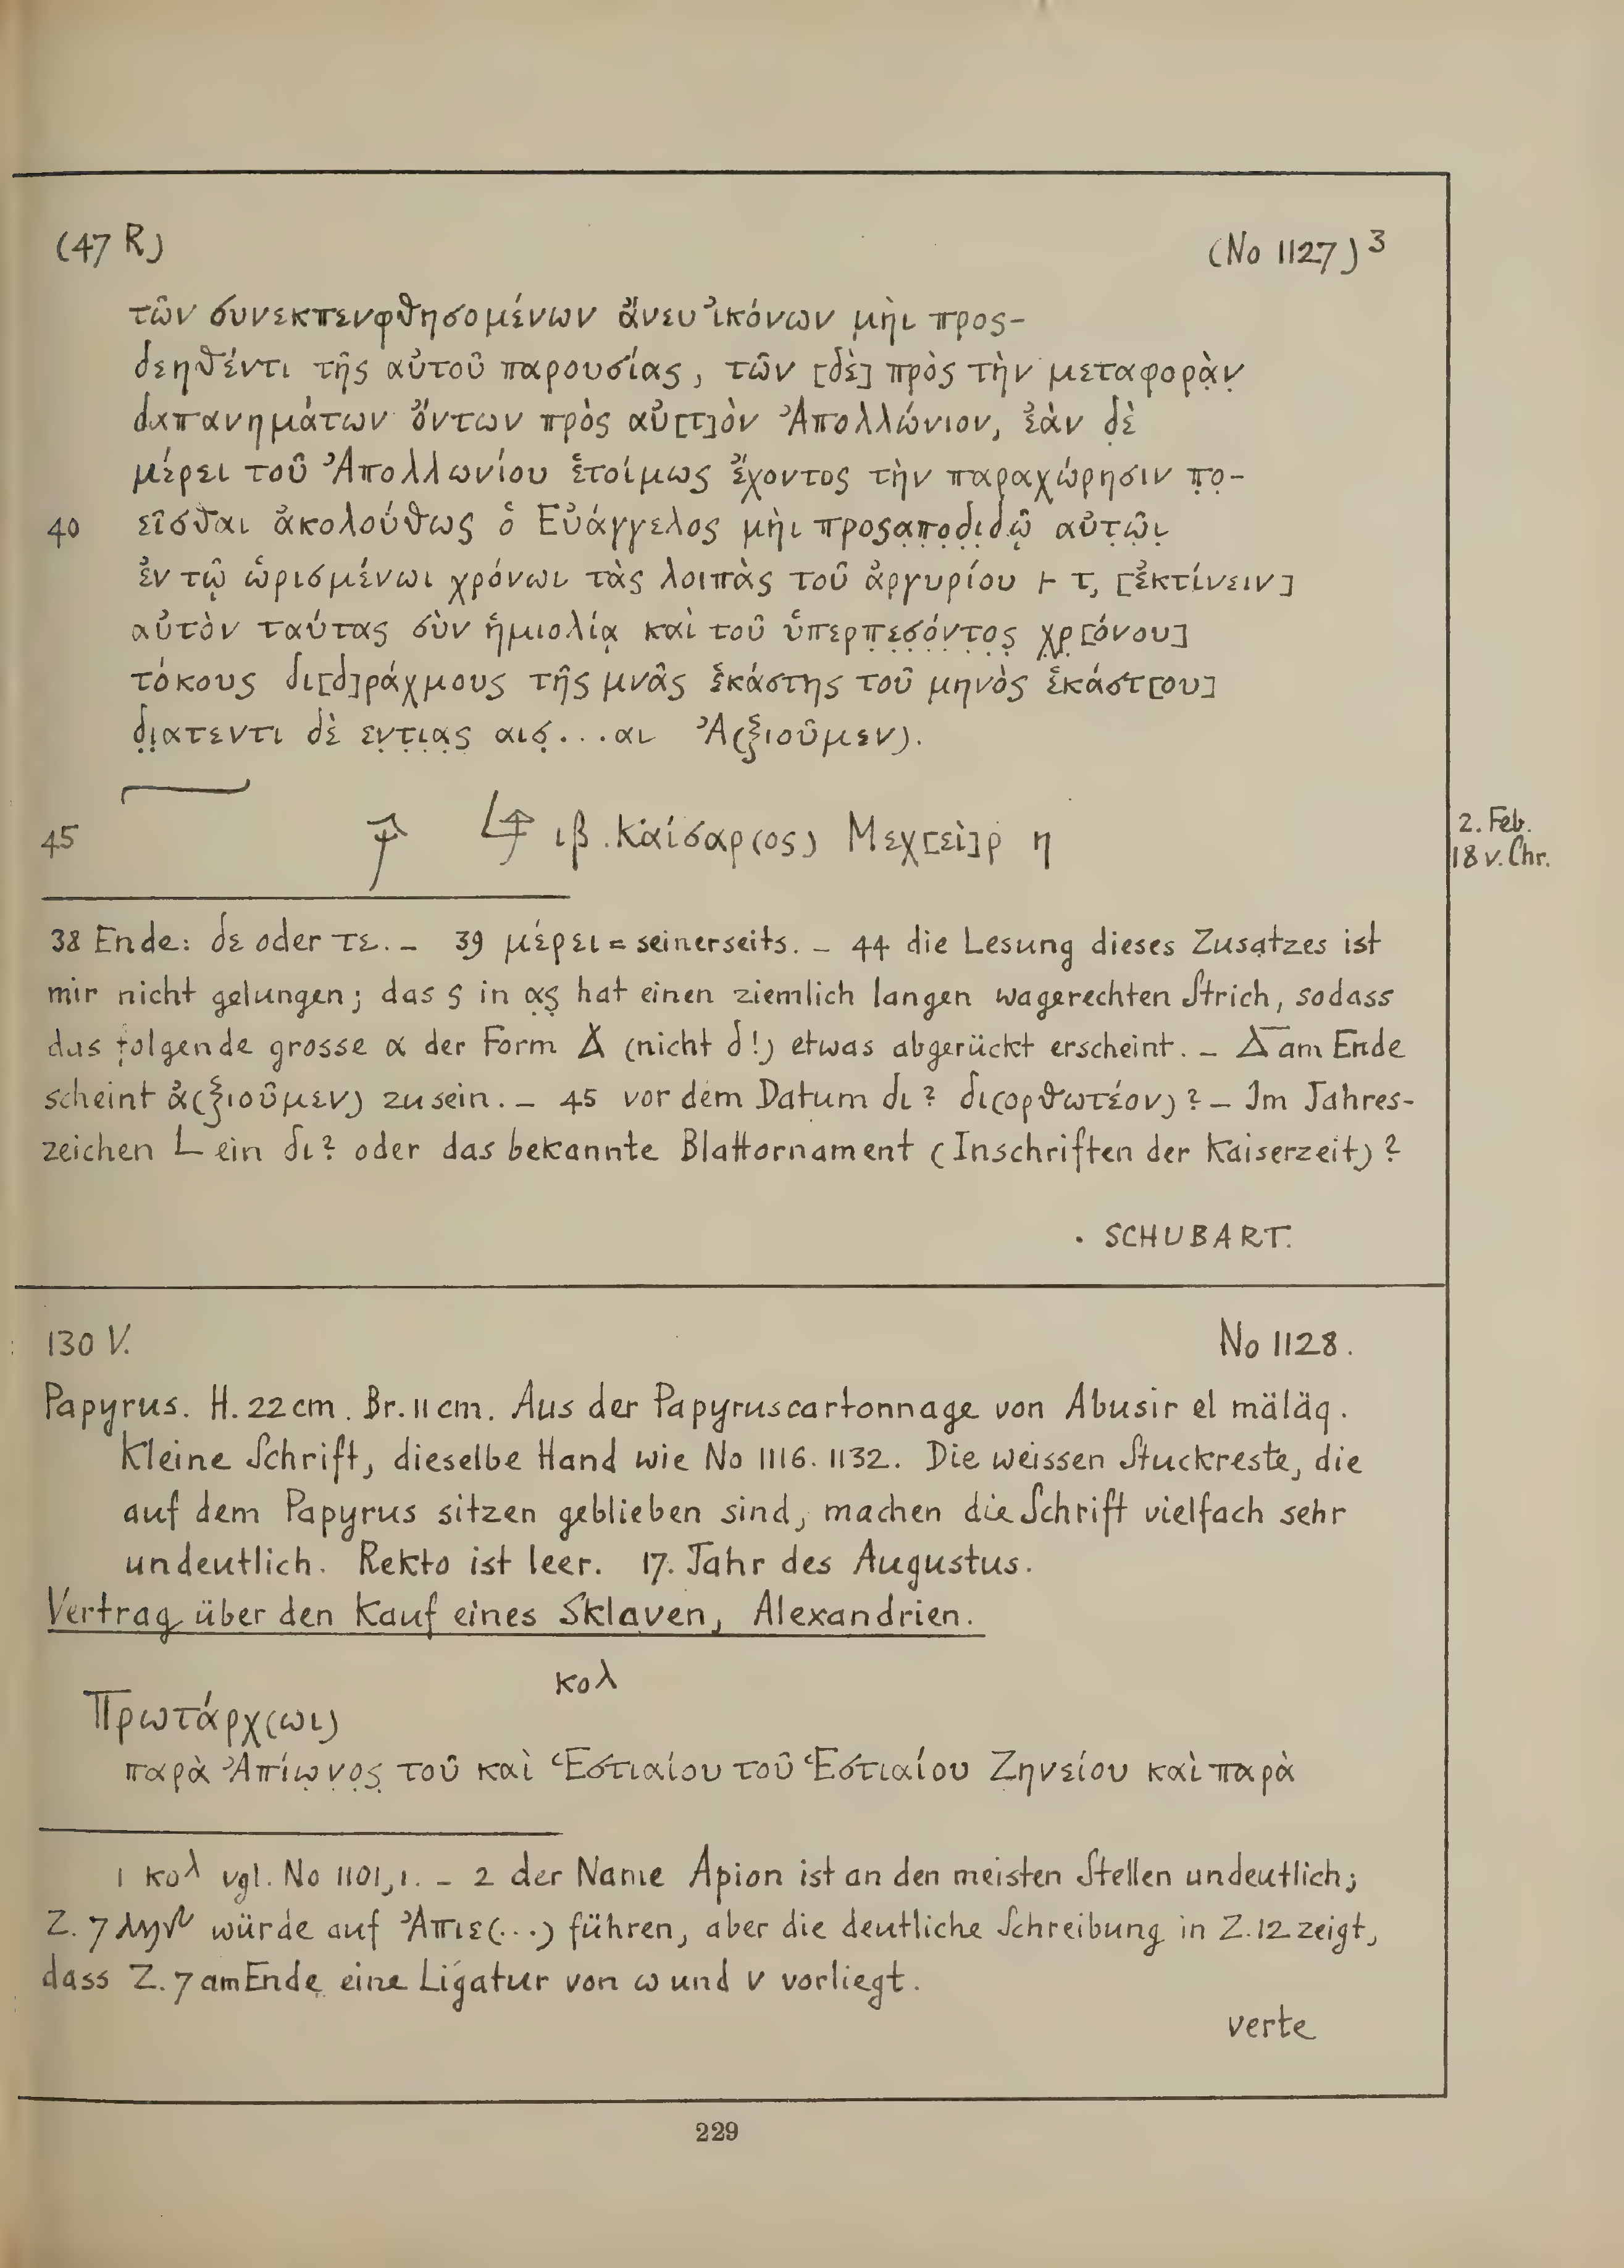 (47 R) (No 1127) 3
τῶν συνεκπενφθησομένων ἄνευ ἰκόνων μὴι προς-
δεηθέντι τῆς αὐτοῦ παρουσίας, τῶν [δὲ] πρὸς τὴν μεταφορὰ̣ν̣
δαπανημάτων ὄντων πρὸς αὐ[τ]ὸν Ἀπολλώνιον, ἐὰν δ̣ὲ
μέρει τοῦ Ἀπολλωνίου ἑτοίμως ἔχοντος τὴν παραχώρησιν π̣ο̣-
40 εῖσθαι ἀκολούθως ὁ Εὐάγγελος μὴι προςα̣π̣ο̣δ̣ι̣δ̣ῷ αὐτ̣ῶ̣ι̣
ἐν τῷ ὡρισμένωι χρόνωι τὰς λοιπὰς τοῦ ἀργυρίου 𐅂 τ, [ἐκτίνειν]
αὐτὸν ταύτας σὺν ἡμιολίᾳ καὶ τοῦ ὑπερπ̣ε̣σ̣ό̣ν̣τ̣ο̣ς̣ χ̣ρ̣[όνου]
τόκους δι[δ]ράχμους τῆς μνᾶς ἑκάστης τοῦ μηνὸς ἑκάστ[ου]
δ̣ι̣ατεντι δὲ εν̣τ̣ι̣α̣ς̣ αισ̣...αι Ἀ(ξιοῦμεν).
45 ιβ Καίσαρ(ος) Μεχ[εὶ]ρ η
2. Feb.
18 v. Chr.
38 Ende: δε oder τε. – 39 μέρει = seinerseits. – 44 die Lesung dieses Zusatzes ist
mir nicht gelungen; das ς in α̣ς̣ hat einen ziemlich langen wagerechten Strich, sodass
das folgende grosse α der Form (nicht δ!) etwas abgerückt erscheint. – am Ende
scheint ἀ(ξιοῦμεν) zu sein. – 45 vor dem Datum δι? δι(ορθωτέον)? – Im Jahres-
zeichen L ein δι? oder das bekannte Blattornament (Inschriften der Kaiserzeit)?
SCHUBART.
130 V. No 1128.
Papyrus. H. 22 cm. Br. 11 cm. Aus der Papyruscartonnage von Abusir el mäläq.
Kleine Schrift, dieselbe Hand wie No 1116. 1132. Die weissen Stuckreste, die
auf dem Papyrus sitzen geblieben sind, machen die Schrift vielfach sehr
undeutlich. Rekto ist leer. 17. Jahr des Augustus.
Vertrag über den Kauf eines Sklaven, Alexandrien.
κολ
Πρωτάρχ(ωι)
παρὰ Ἀπίω̣ν̣ο̣ς̣ τοῦ καὶ Ἑστιαίου τοῦ Ἑστιαίου Ζηνείου καὶ παρὰ
1 κολ vgl. No 1101,1. – 2 der Name Apion ist an den meisten Stellen undeutlich;
Z. 7 würde auf Ἀπιε(...) führen, aber die deutliche Schreibung in Z. 12 zeigt,
dass Z. 7 am Ende eine Ligatur von ω und ν vorliegt.
verte
229